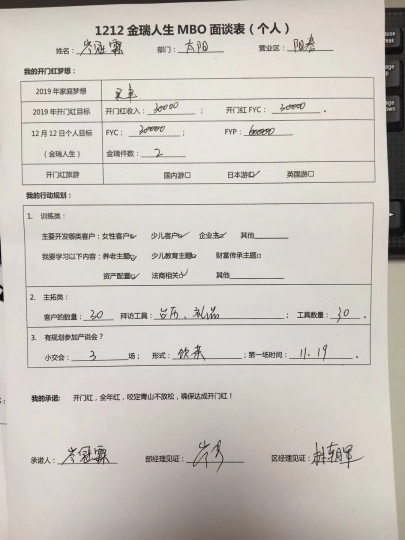 1212 金瑞人生 MBO 面谈表（个人）
姓名：岑冠霖 部门：太阳 营业区：阳春
我的开门红梦想：
2019 年家庭梦想
2019 年开门红目标 开门红收入：30000 ； 开门红 FYC：30000 。
12 月 12 日个人目标 FYC：30000 ； FYP：60000
（金瑞人生） 金瑞件数：2
开门红旅游 国内游□ 日本游☑ 英国游□
我的行动规划：
1. 训练类：
主要开发哪类客户：女性客户☑ 少儿客户☑ 企业主☑ 其他
我要学习以下内容：养老主题☑ 少儿教育主题☑ 财富传承主题□
资产配置☑ 法商相关☑ 其他
2. 主拓类：
客户的数量：30 拜访工具：台历、礼品 ； 工具数量：30 。
3. 有规划参加产说会？
小交会：3 场； 形式：饮茶 ；第一场时间：11.19 。
我的承诺： 开门红，全年红，咬定青山不放松，确保达成开门红！
承诺人：岑冠霖 部经理见证：岑 区经理见证：